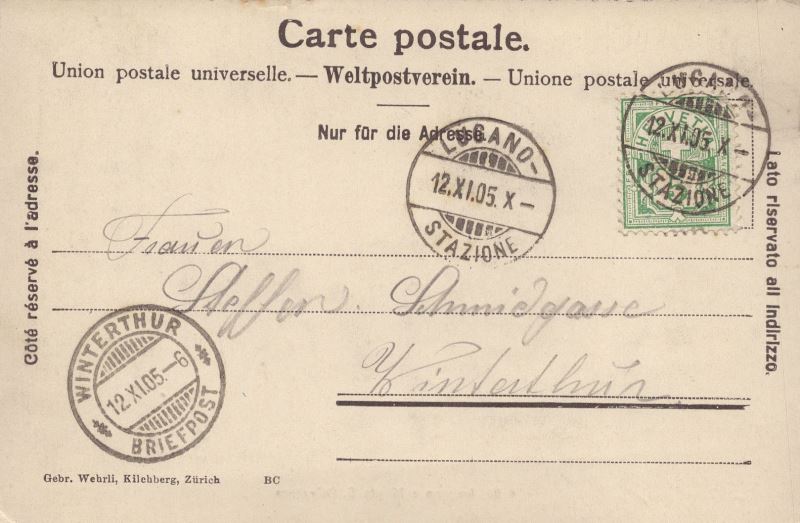 Carte postale.
Union postale universelle. — Weltpostverein. — Unione postale universale.
Nur für die Adresse.
LUGANO
12.XI.05. X—
STAZIONE
LUGANO
12.XI.05. X—
STAZIONE
HELVETIA
Côté réservé à l'adresse.
Lato riservato all Indirizzo.
Frauen
Steffen. Schmidgasse
Winterthur
WINTERTHUR
12.XI.05.—6
BRIEFPOST
Gebr. Wehrli, Kilchberg, Zürich BC